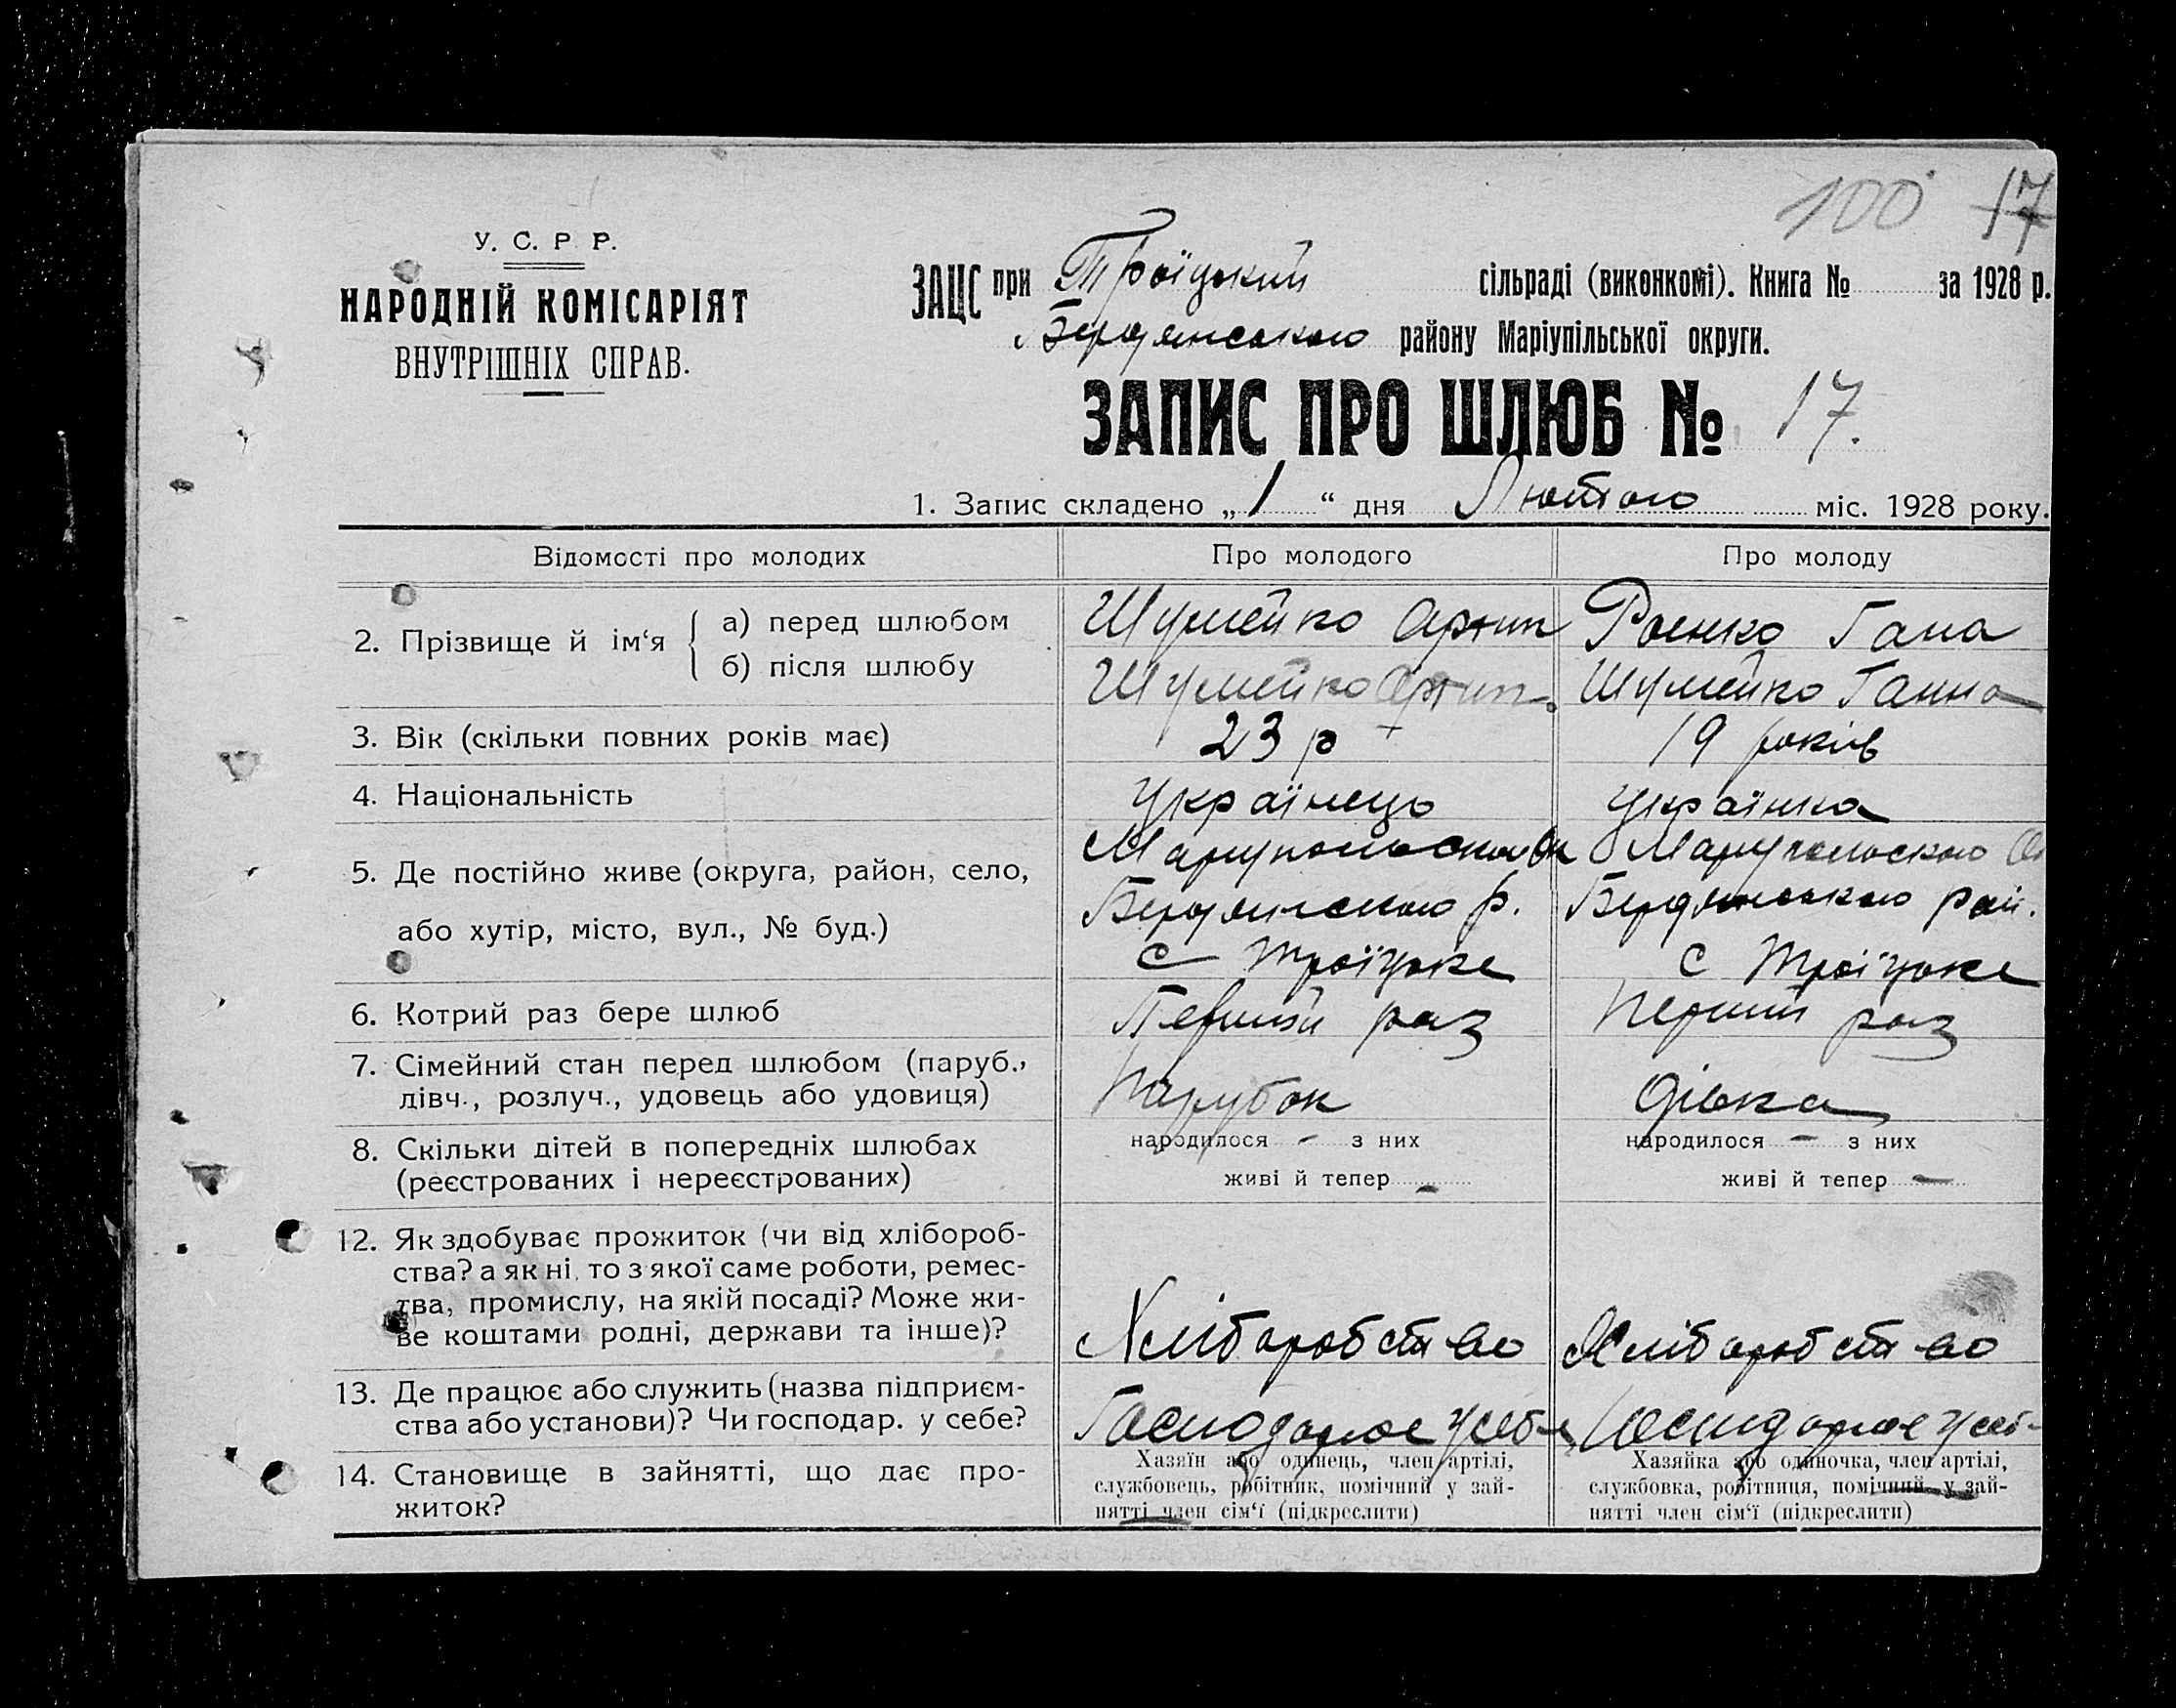 100 17
У. С. Р. Р.
НАРОДНІЙ КОМІСАРІЯТ
ВНУТРІШНІХ СПРАВ.
ЗАЦС при Троїцький сільраді (виконкомі). Книга № за 1928 р.
Бердянського району Маріупільської округи.
ЗАПИС ПРО ШЛЮБ № 17.
1. Запис складено „ 1 “ дня Лютого міс. 1928 року.
Відомості про молодих Про молодого Про молоду
2. Прізвище й ім‘я
а) перед шлюбом Шумейко Роенко Гана
б) після шлюбу Шумейко Шумейко Ганна
3. Вік (скільки повних років має) 23 р 19 років
4. Національність Українець Українка
5. Де постійно живе (округа, район, село,
або хутір, місто, вул., № буд.)
Бердянського р. Бердянського рай.
с Троїцьке с Троїцьке
6. Котрий раз бере шлюб Перший раз Перший раз
7. Сімейний стан перед шлюбом (паруб.,
дівч., розлуч., удовець або удовиця) Парубок дівка
8. Скільки дітей в попередніх шлюбах народилося – з них народилося – з них
(реєстрованих і нереєстрованих) живі й тепер – живі й тепер –
12. Як здобуває прожиток (чи від хлібороб-
ства? а як ні, то з якої саме роботи, ремес-
тва, промислу, на якій посаді? Може жи-
ве коштами родні, держави та інше)? Хліборобство Хліборобство
13. Де працює або служить (назва підприєм-
ства або установи)? Чи господар. у себе?
14. Становище в зайнятті, що дає про-
житок?
Хазяїн або одинець, член артілі,
службовець, робітник, помічний у зай-
нятті член сім‘ї (підкреслити)
Хазяйка або одиночка, член артілі,
службовка, робітниця, помічний у зай-
нятті член сім‘ї (підкреслити)